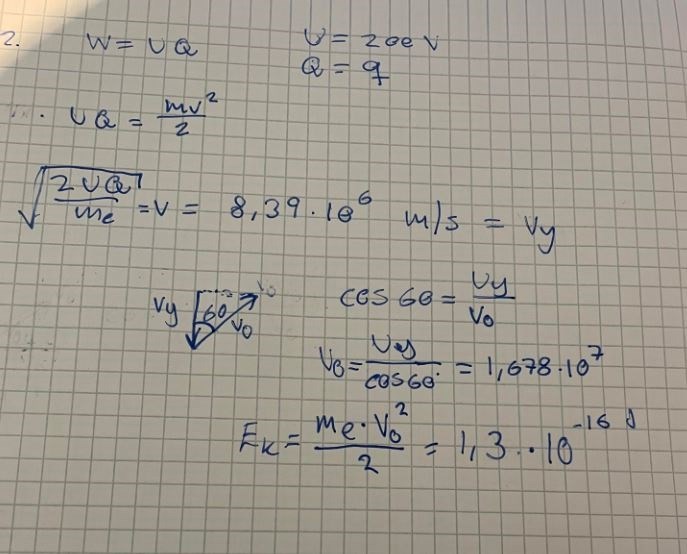 2. W = UQ U = 200 V
Q = q
UQ = mv²/2
√(2UQ/me) = v = 8,39·10⁶ m/s = Vy
Vy 60 V₀ V₀ cos 60 = Vy/V₀
V₀ = Vy/cos60° = 1,678·10⁷
Eₖ = me·V₀²/2 = 1,3·10⁻¹⁶ J